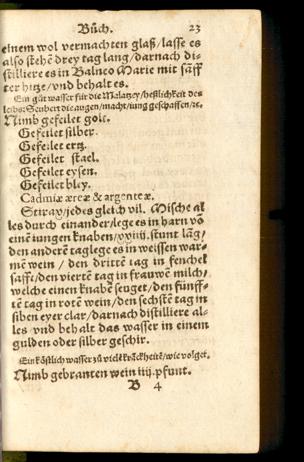 Bůch. 23
einem wol vermachten glaß/lasse es
also stehē drey tag lang/darnach di-
stilliere es in Balneo Marie mit sāff
ter hitze/vnd behalt es.
Ein gůt wasser für die Malatzey/heßlichkeit des
leibs: Seubert die augen/macht/iung geschaffen/ꝛc.
Nimb gefeilet golt.
Gefeilet silber.
Gefeilet ertz.
Gefeilet stael.
Gefeilet eysen.
Gefeilet bley.
Cadmiæ æreæ & argenteæ.
Stirax/jedes gleich vil. Mische al
les durch einander/lege es in harn vō
einē iungen knaben/xxiiij.stunt lāg/
den anderē tag lege es in weissen war-
mē wein / den drittē tag in fenchel
safft/den viertē tag in frauwē milch/
welche einen knabē seuget/den fünff-
tē tag in rotē wein/den sechstē tag in
siben eyer clar/darnach distilliere al-
les vnd behalt das wasser in einem
gulden oder silber geschir.
Ein köstlich wasser zů vielē krāckheitē/wie volget.
Nimb gebranten wein iiij.pfunt.
B 4